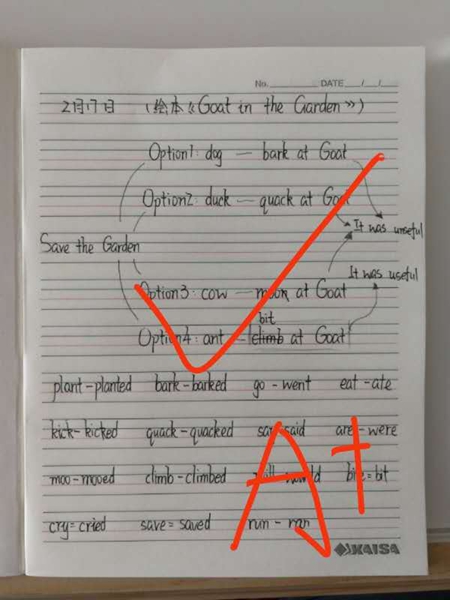 No. DATE / /
2月17日 (绘本《Goat in the Garden》)
Option1: dog — bark at Goat
Option2: duck — quack at Goat
It was unseful
Save the Garden
It was useful
Option3: cow — moon at Goat
bit
Option4: ant — climb at Goat
plant-planted bark-barked go-went eat-ate
kick-kicked quack-quacked say-said are-were
moo-mooed climb-climbed will-would bite=bit
cry=cried save=saved run-ran
A+
KAISA